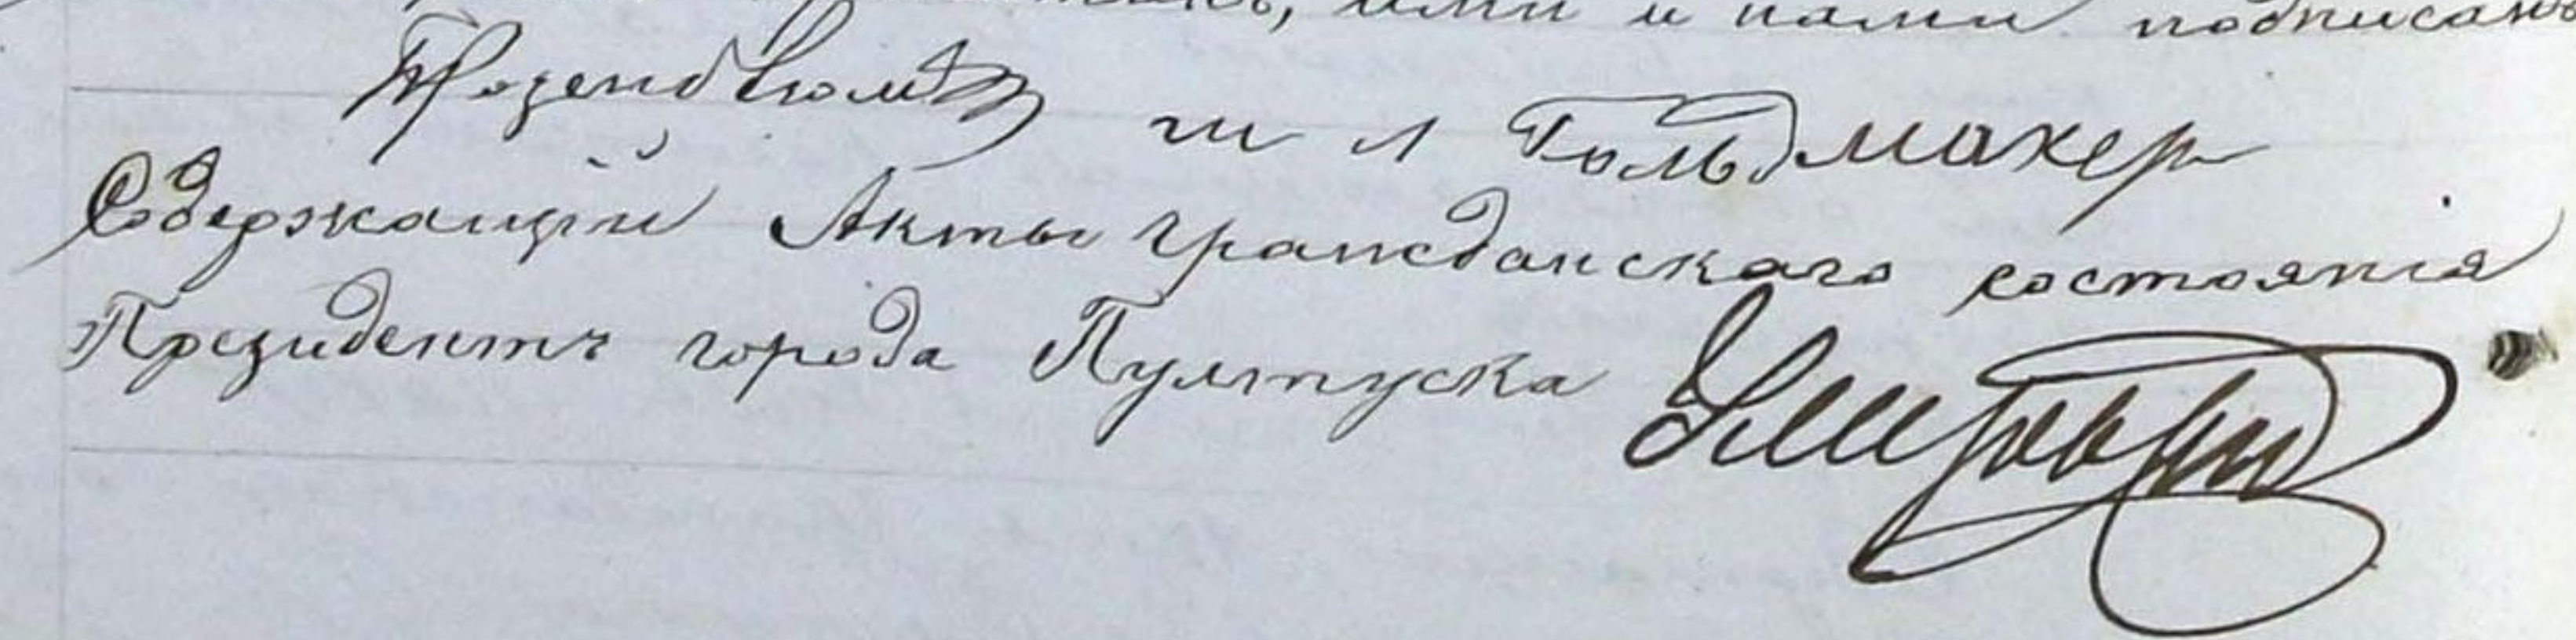 ими и нами подписанъ
Розенблюмъ ш л Гольдмахер
Содержащій Акты гражданскаго состоянія
Президентъ города Пултуска